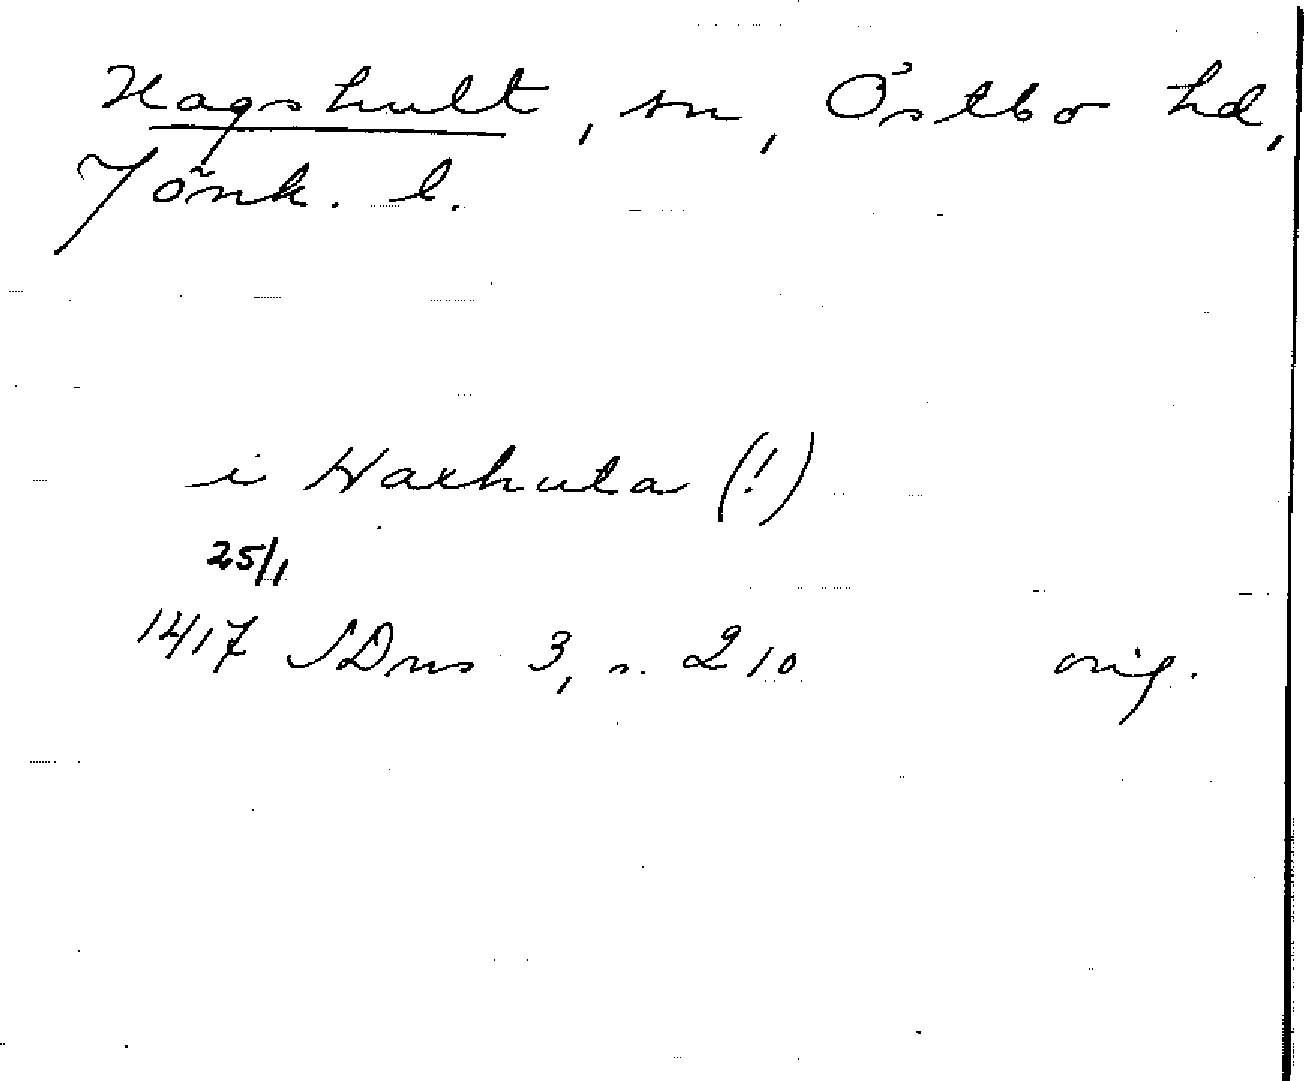 Hagshult, sn, Östbo hd,
Jönk. l.
i Haxhula (!)
25/1
1417 SDns 3, s. 210 orig.